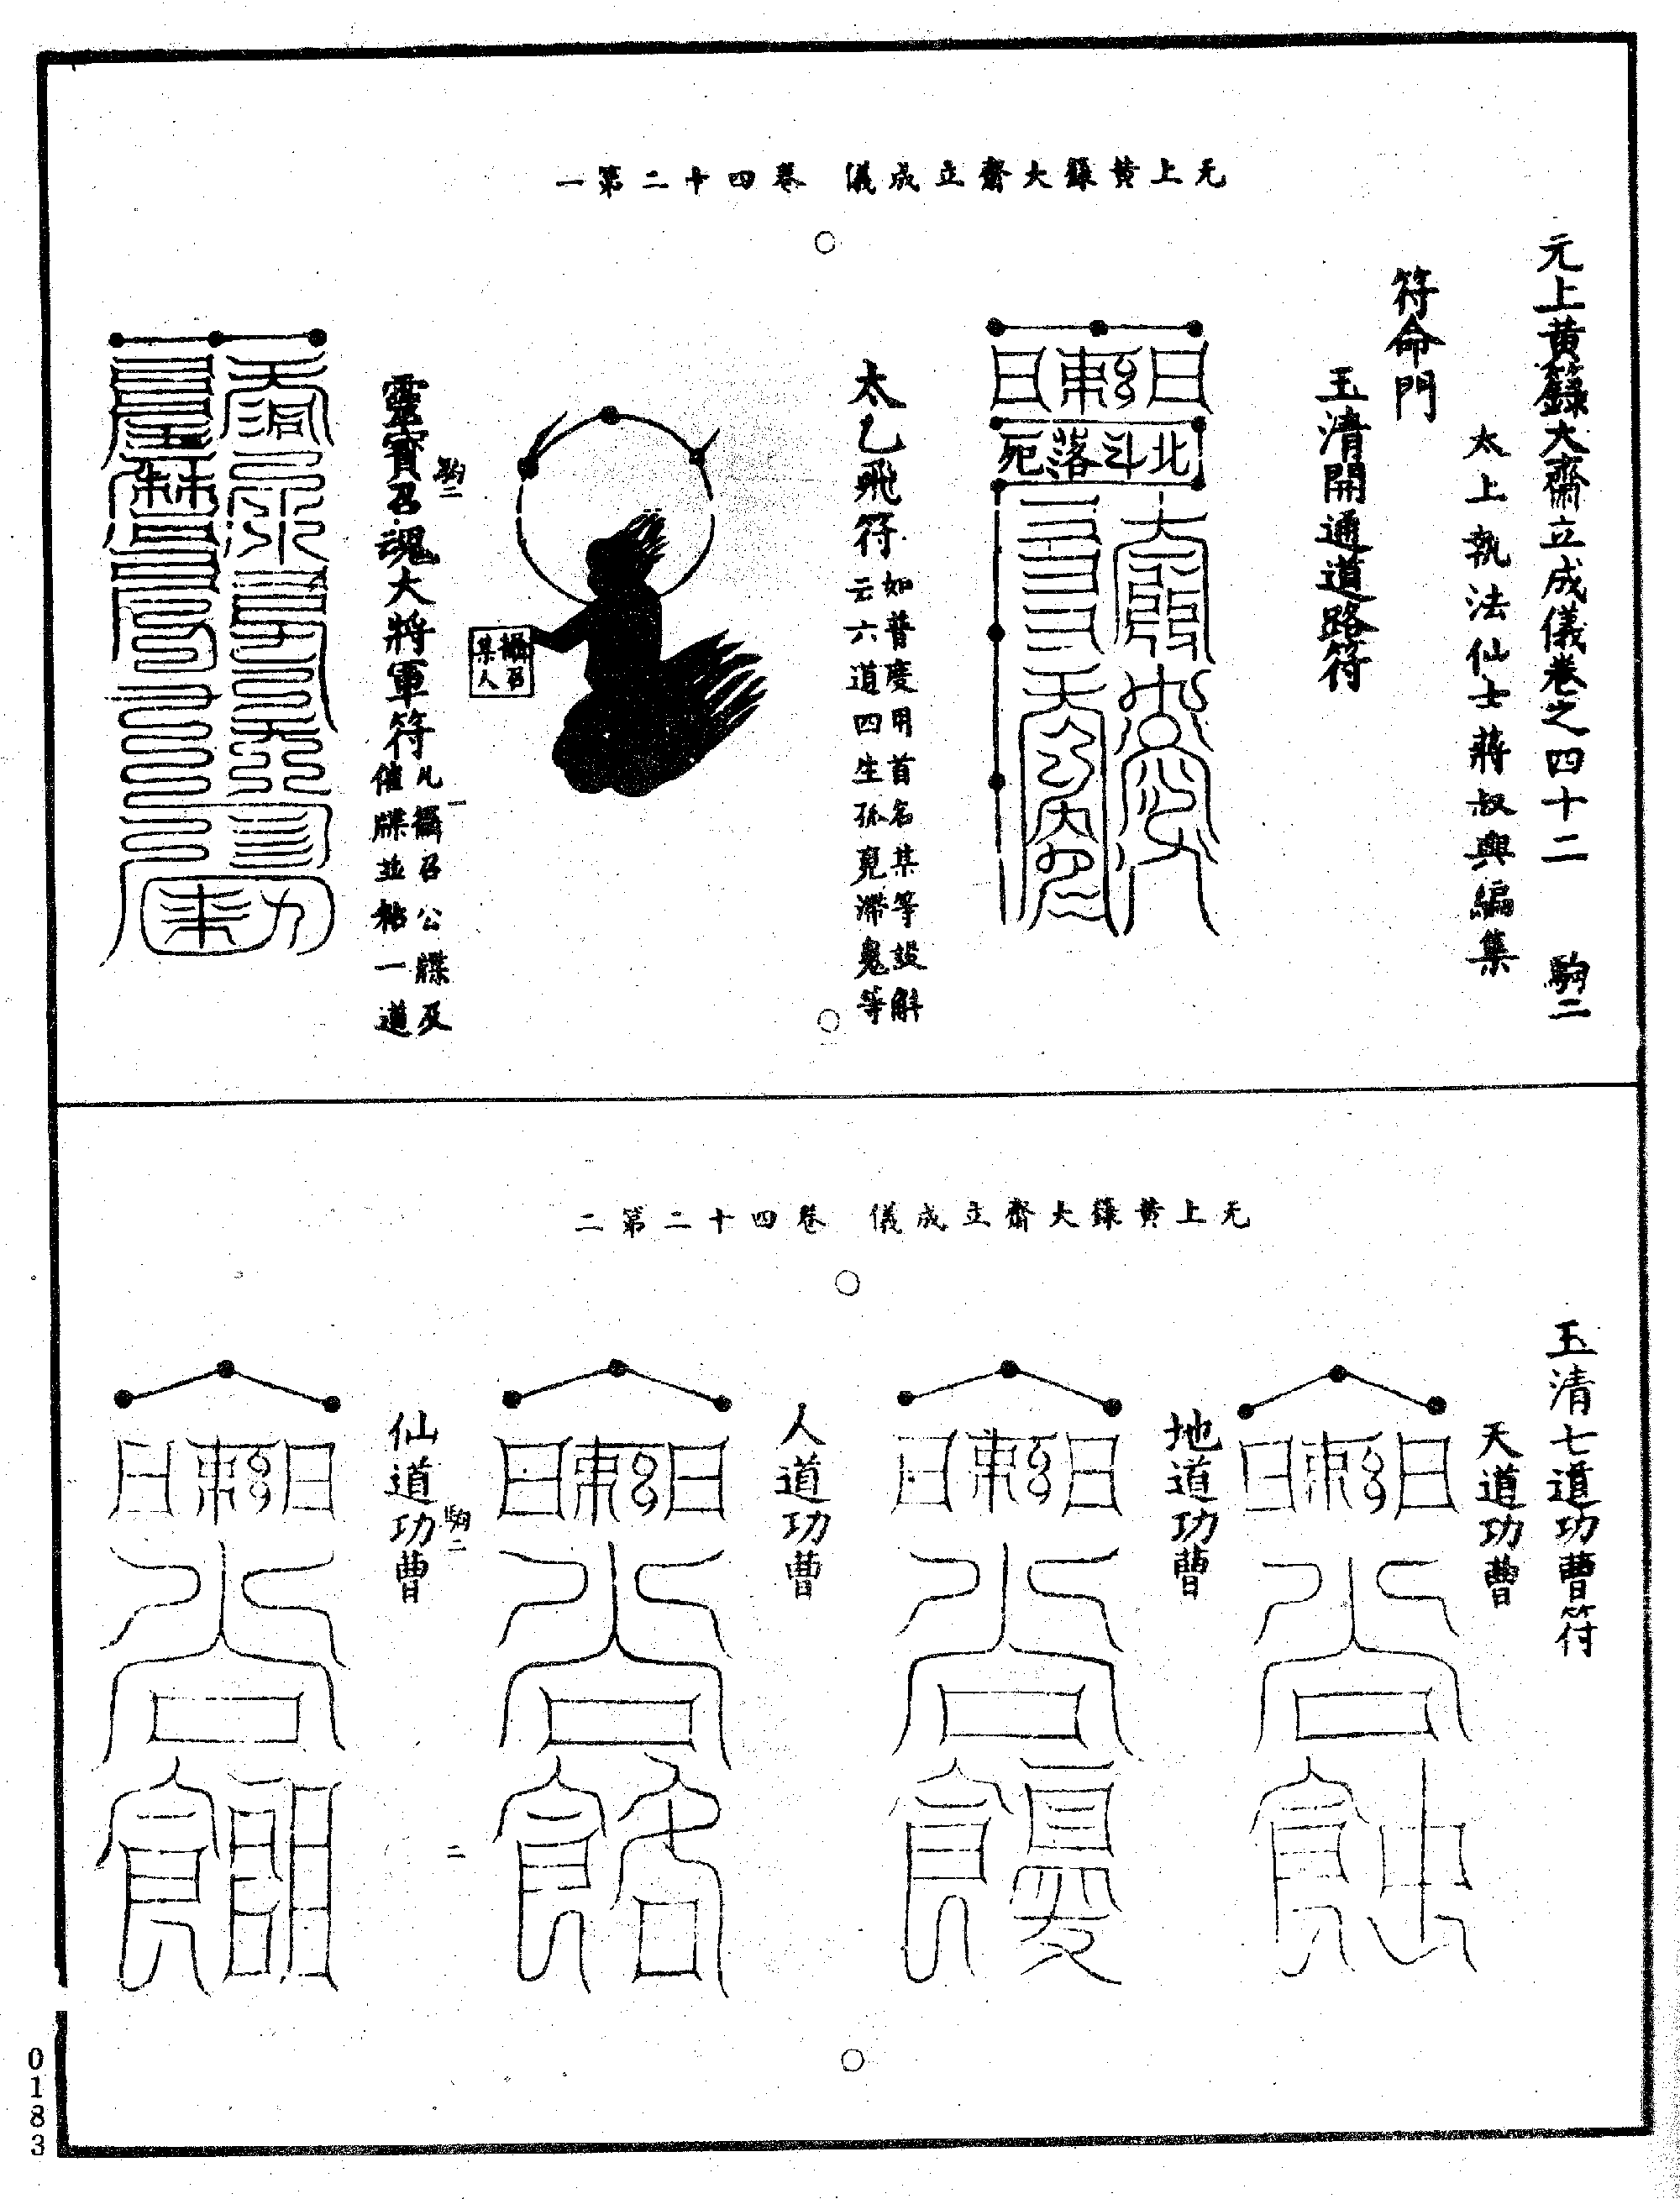 无上黄籙大齋立成儀 卷四十二第一
元上黄籙大齋立成儀卷之四十二 駒二
太上執法仙士蔣叔輿編集
符命門
玉清開通道路符
北斗落死
太乙飛符
如普度用首名某等設斛
云六道四生孤䰟滯鬼等
攝召
某人
駒二
靈寳召魂大將軍符
凡攝召公牒及
催牒並粘一道
一
无上黄籙大齋立成儀 卷四十二第二
玉清七道功曹符
天道功曹
地道功曹
人道功曹
駒二
二
仙道功曹
0183